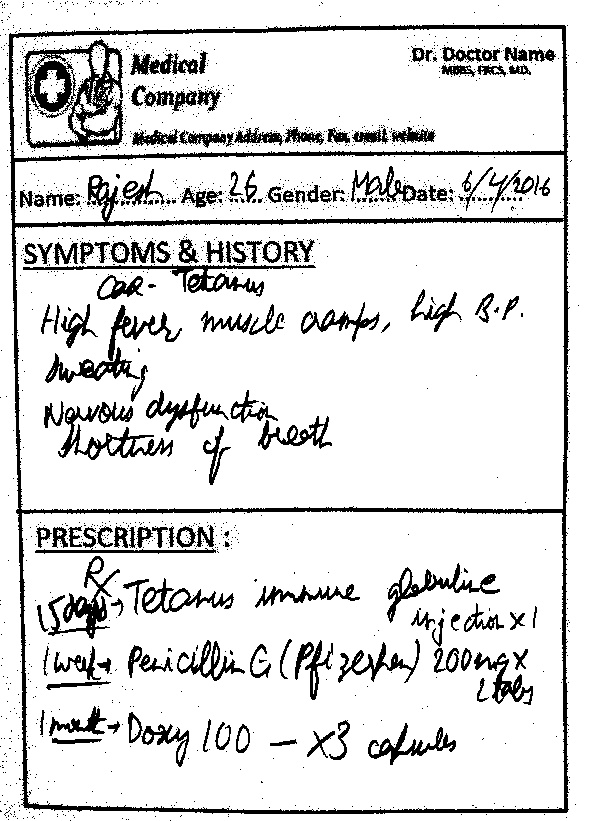 Medical
Company
Dr. Doctor Name
MBBS, FRCS, MD.
Medical Company Address, Phone, Fax, email, website
Name: Rajesh Age: 26 Gender: Male Date: 6/4/2016
SYMPTOMS & HISTORY
Tetanus
High fever, muscle cramps, high B.P.
Sweating
Nervous dysfunction
Shortness of breath
PRESCRIPTION :
Rx
15 days → Tetanus immune globuline
injection x 1
1 week → Penicillin G (Pfizerpen) 200mg x
2 tabs
1 month → Doxy 100 — x3 capsules